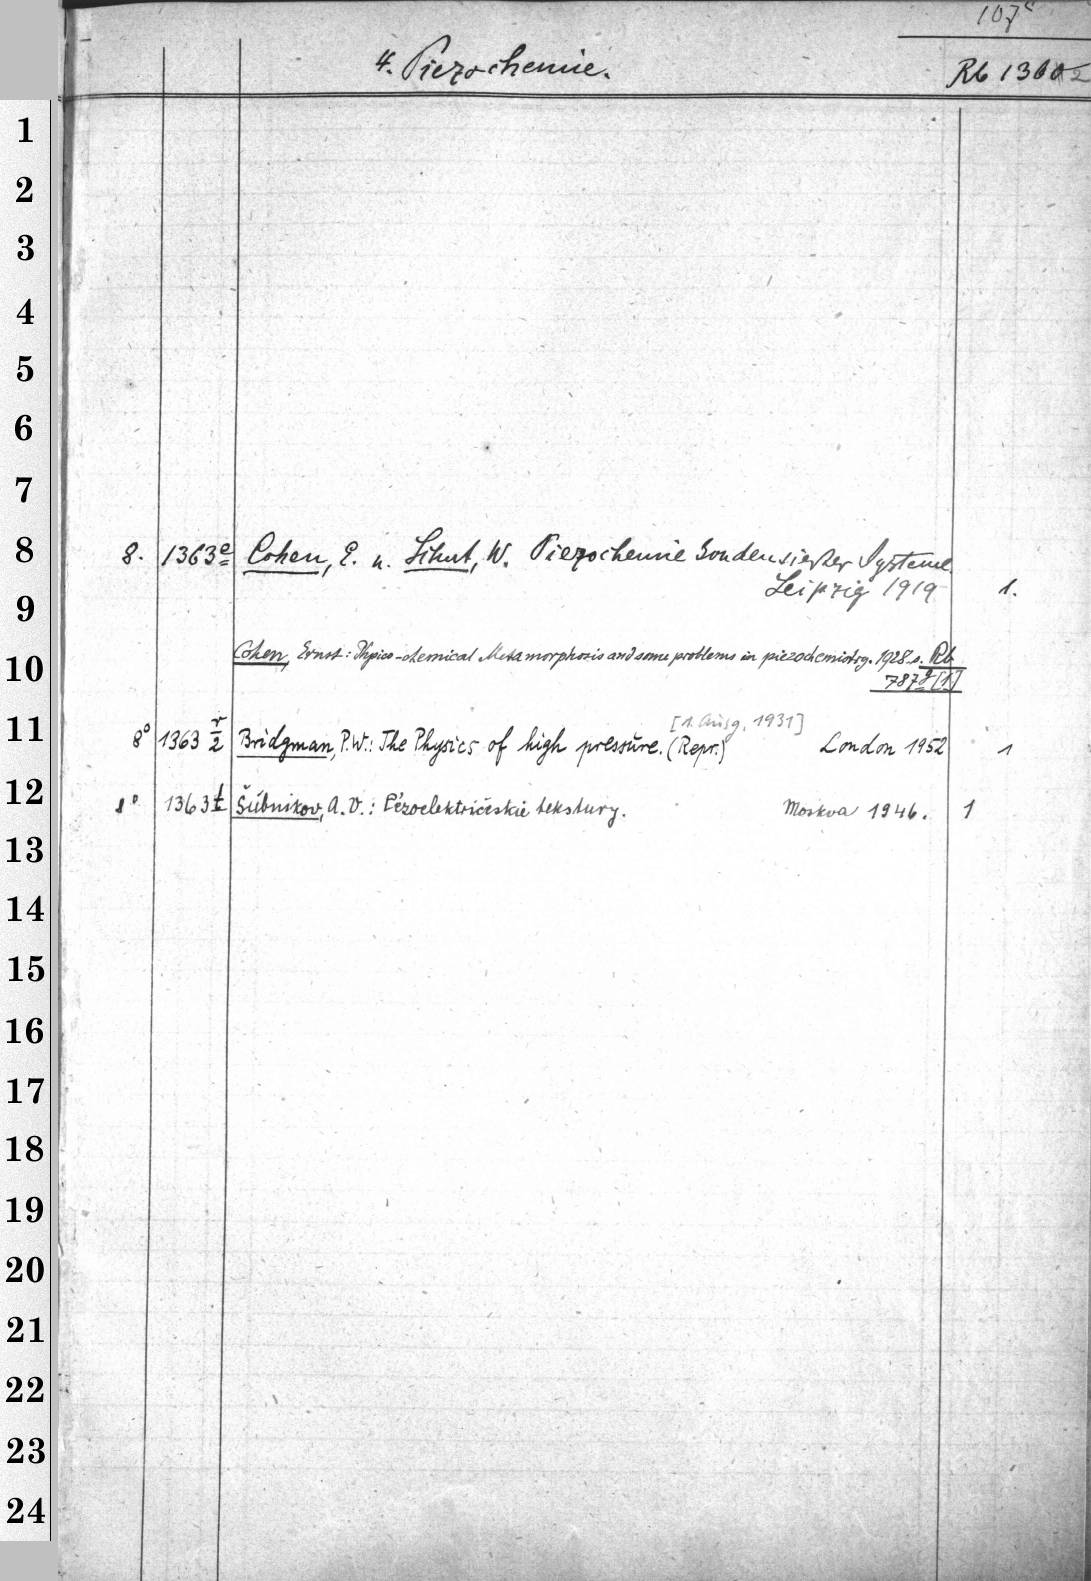 107c
4. Piezochemie.
Rb 1360
1
2
3
4
5
6
7
8
8. 1363e Cohen, E. u. Schut, W. Piezochemie kondensierter Systeme.
Leipzig 1919 1.
9
Cohen, Ernst: Physico-chemical Metamorphosis and some problems in piezochemistry. 1928 s. Rb
10
787g [1]
[1. Ausg. 1931]
11
8° 1363 r/2 Bridgman, P.W.: The Physics of high pressure. (Repr.) London 1952 1
12
8° 1363t Šúbnikov, A.V.: Pézoelektričeskie tekstury. Moskva 1946. 1
13
14
15
16
17
18
19
20
21
22
23
24